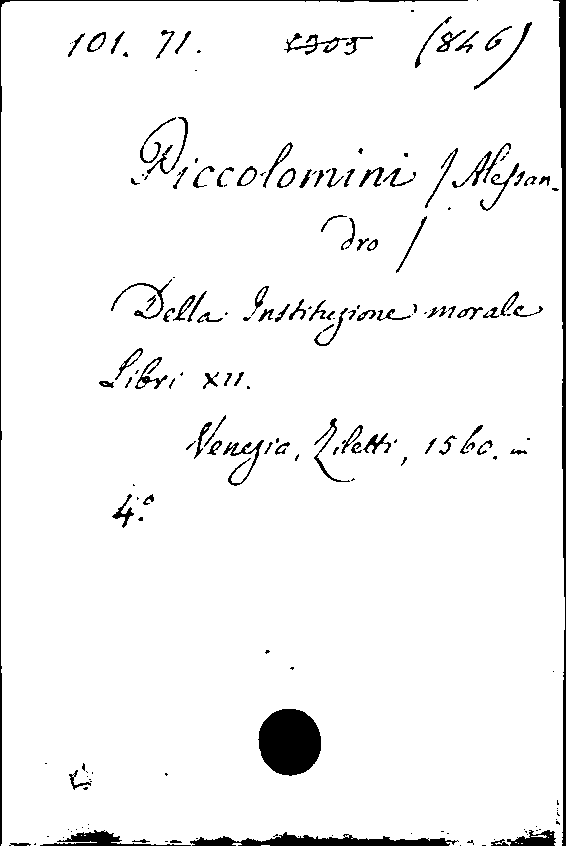 101. 71. 1305 (846)
Piccolomini / Alessan-
dro /
Della Instituzione morale
Libri XII.
Venezia, Ziletti, 1560. in
4.º